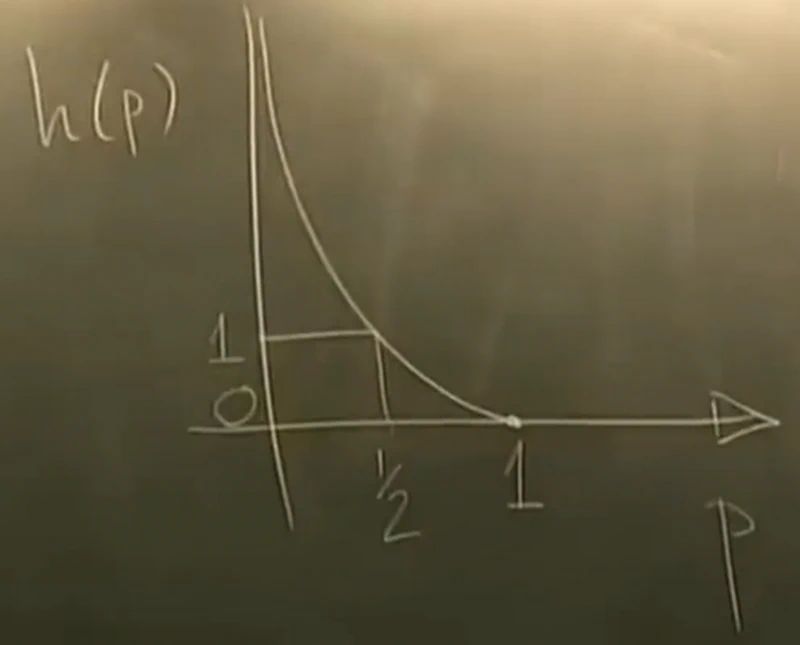 h(p)
1
0
1/2
1
p